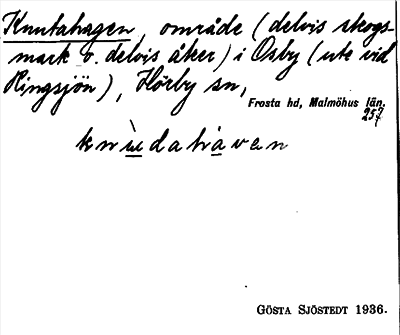 Knutahagen, område (delvis skogs-
mark o. delvis åker) i Osby (ute vid
Ringsjön), Hörby sn,
Frosta hd, Malmöhus län.
257
GÖSTA SJÖSTEDT 1936.